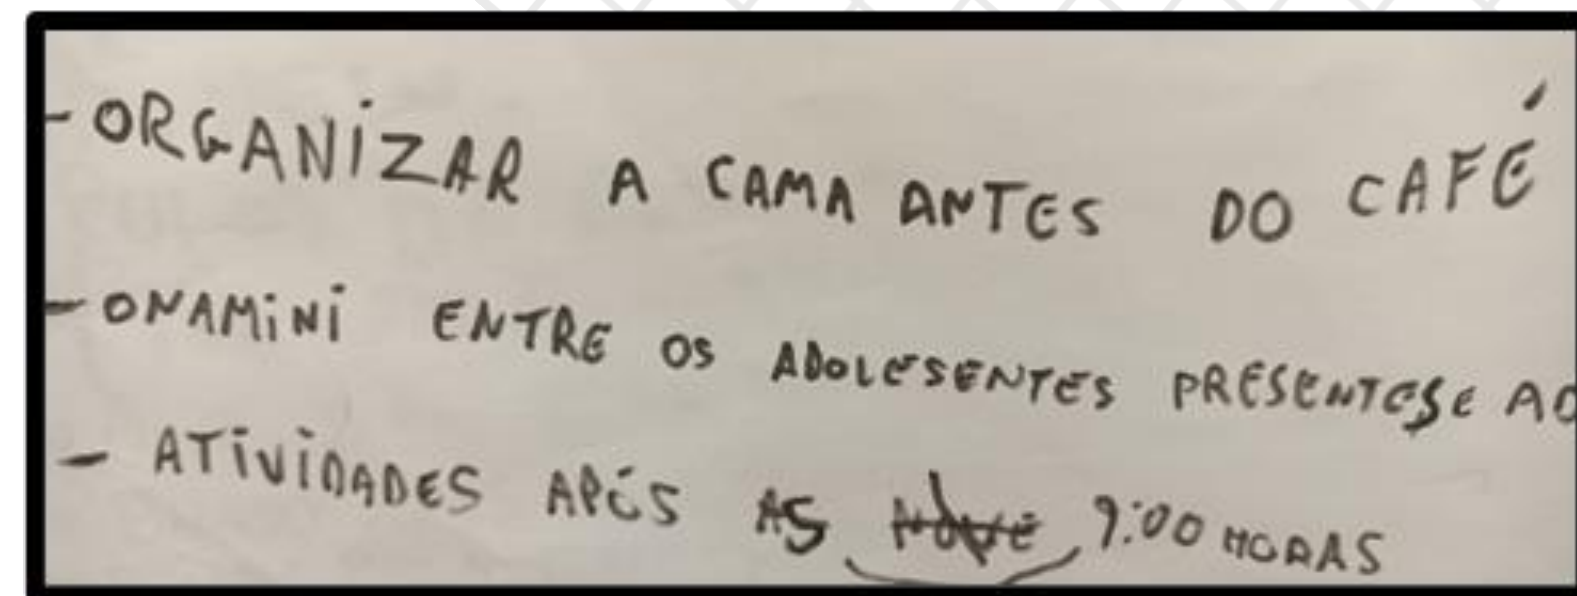 - ORGANIZAR A CAMA ANTES DO CAFÉ
- ONAMINI ENTRE OS ADOLESENTES PRESENTESE AO
- ATIVIDADES APÓS AS NOVE 9:00 HORAS